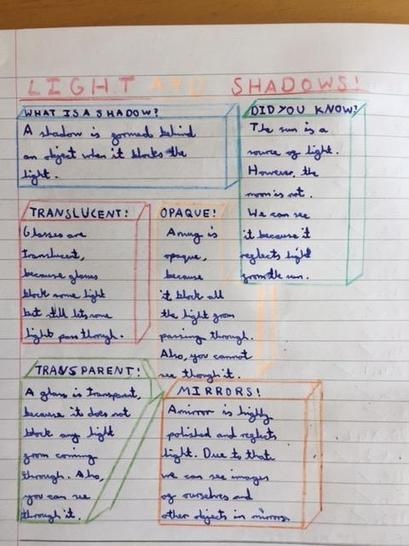 LIGHT AND SHADOWS!
WHAT IS A SHADOW?
A shadow is formed behind
an object when it blocks the
light.
DID YOU KNOW?
The sun is a
source of light.
However, the
moon is not.
We can see
it because it
reflects light
from the sun.
TRANSLUCENT!
Glasses are
translucent,
because glasses
block some light
but still lets some
light pass through.
OPAQUE!
A mug is
opaque,
because
it block all
the light from
passing through.
Also, you cannot
see though it.
TRANSPARENT!
A glass is transparent,
because it does not
block any light
from coming
through. Also,
you can see
through it.
MIRRORS!
A mirror is highly
polished and reflects
light. Due to that
we can see images
of ourselves and
other objects in mirrors.